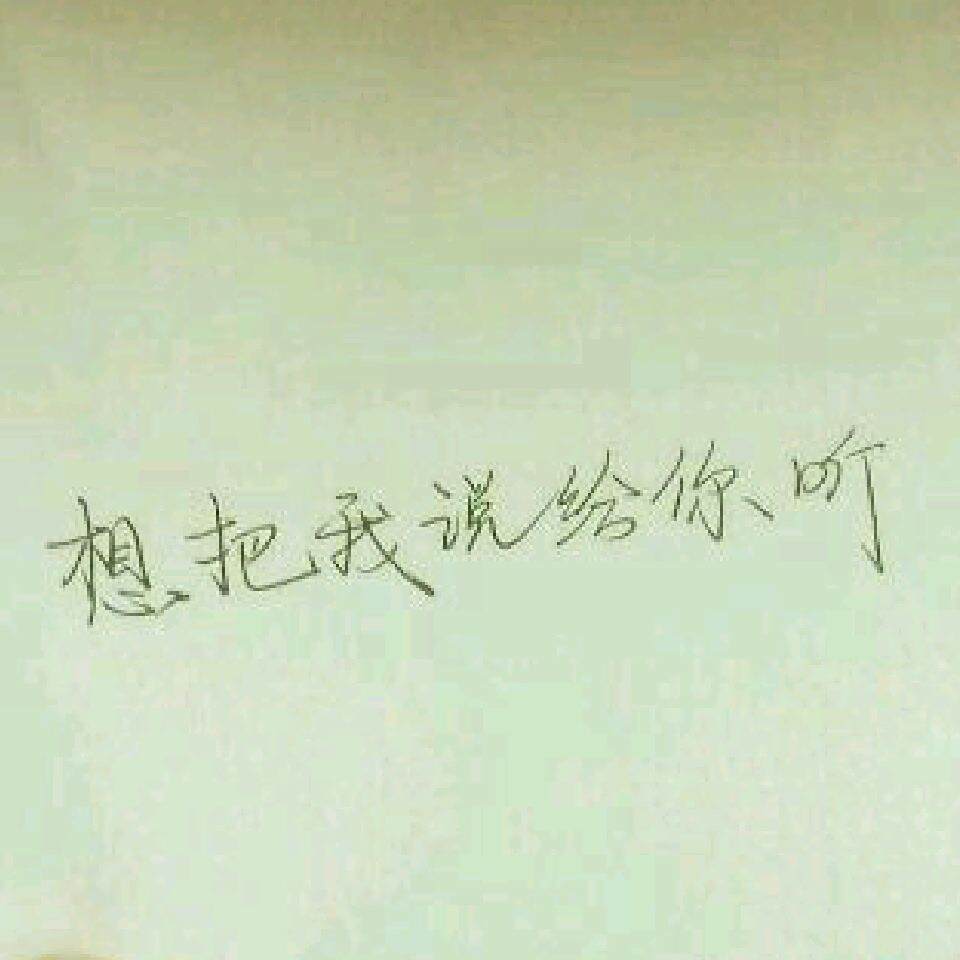 想把我说给你听